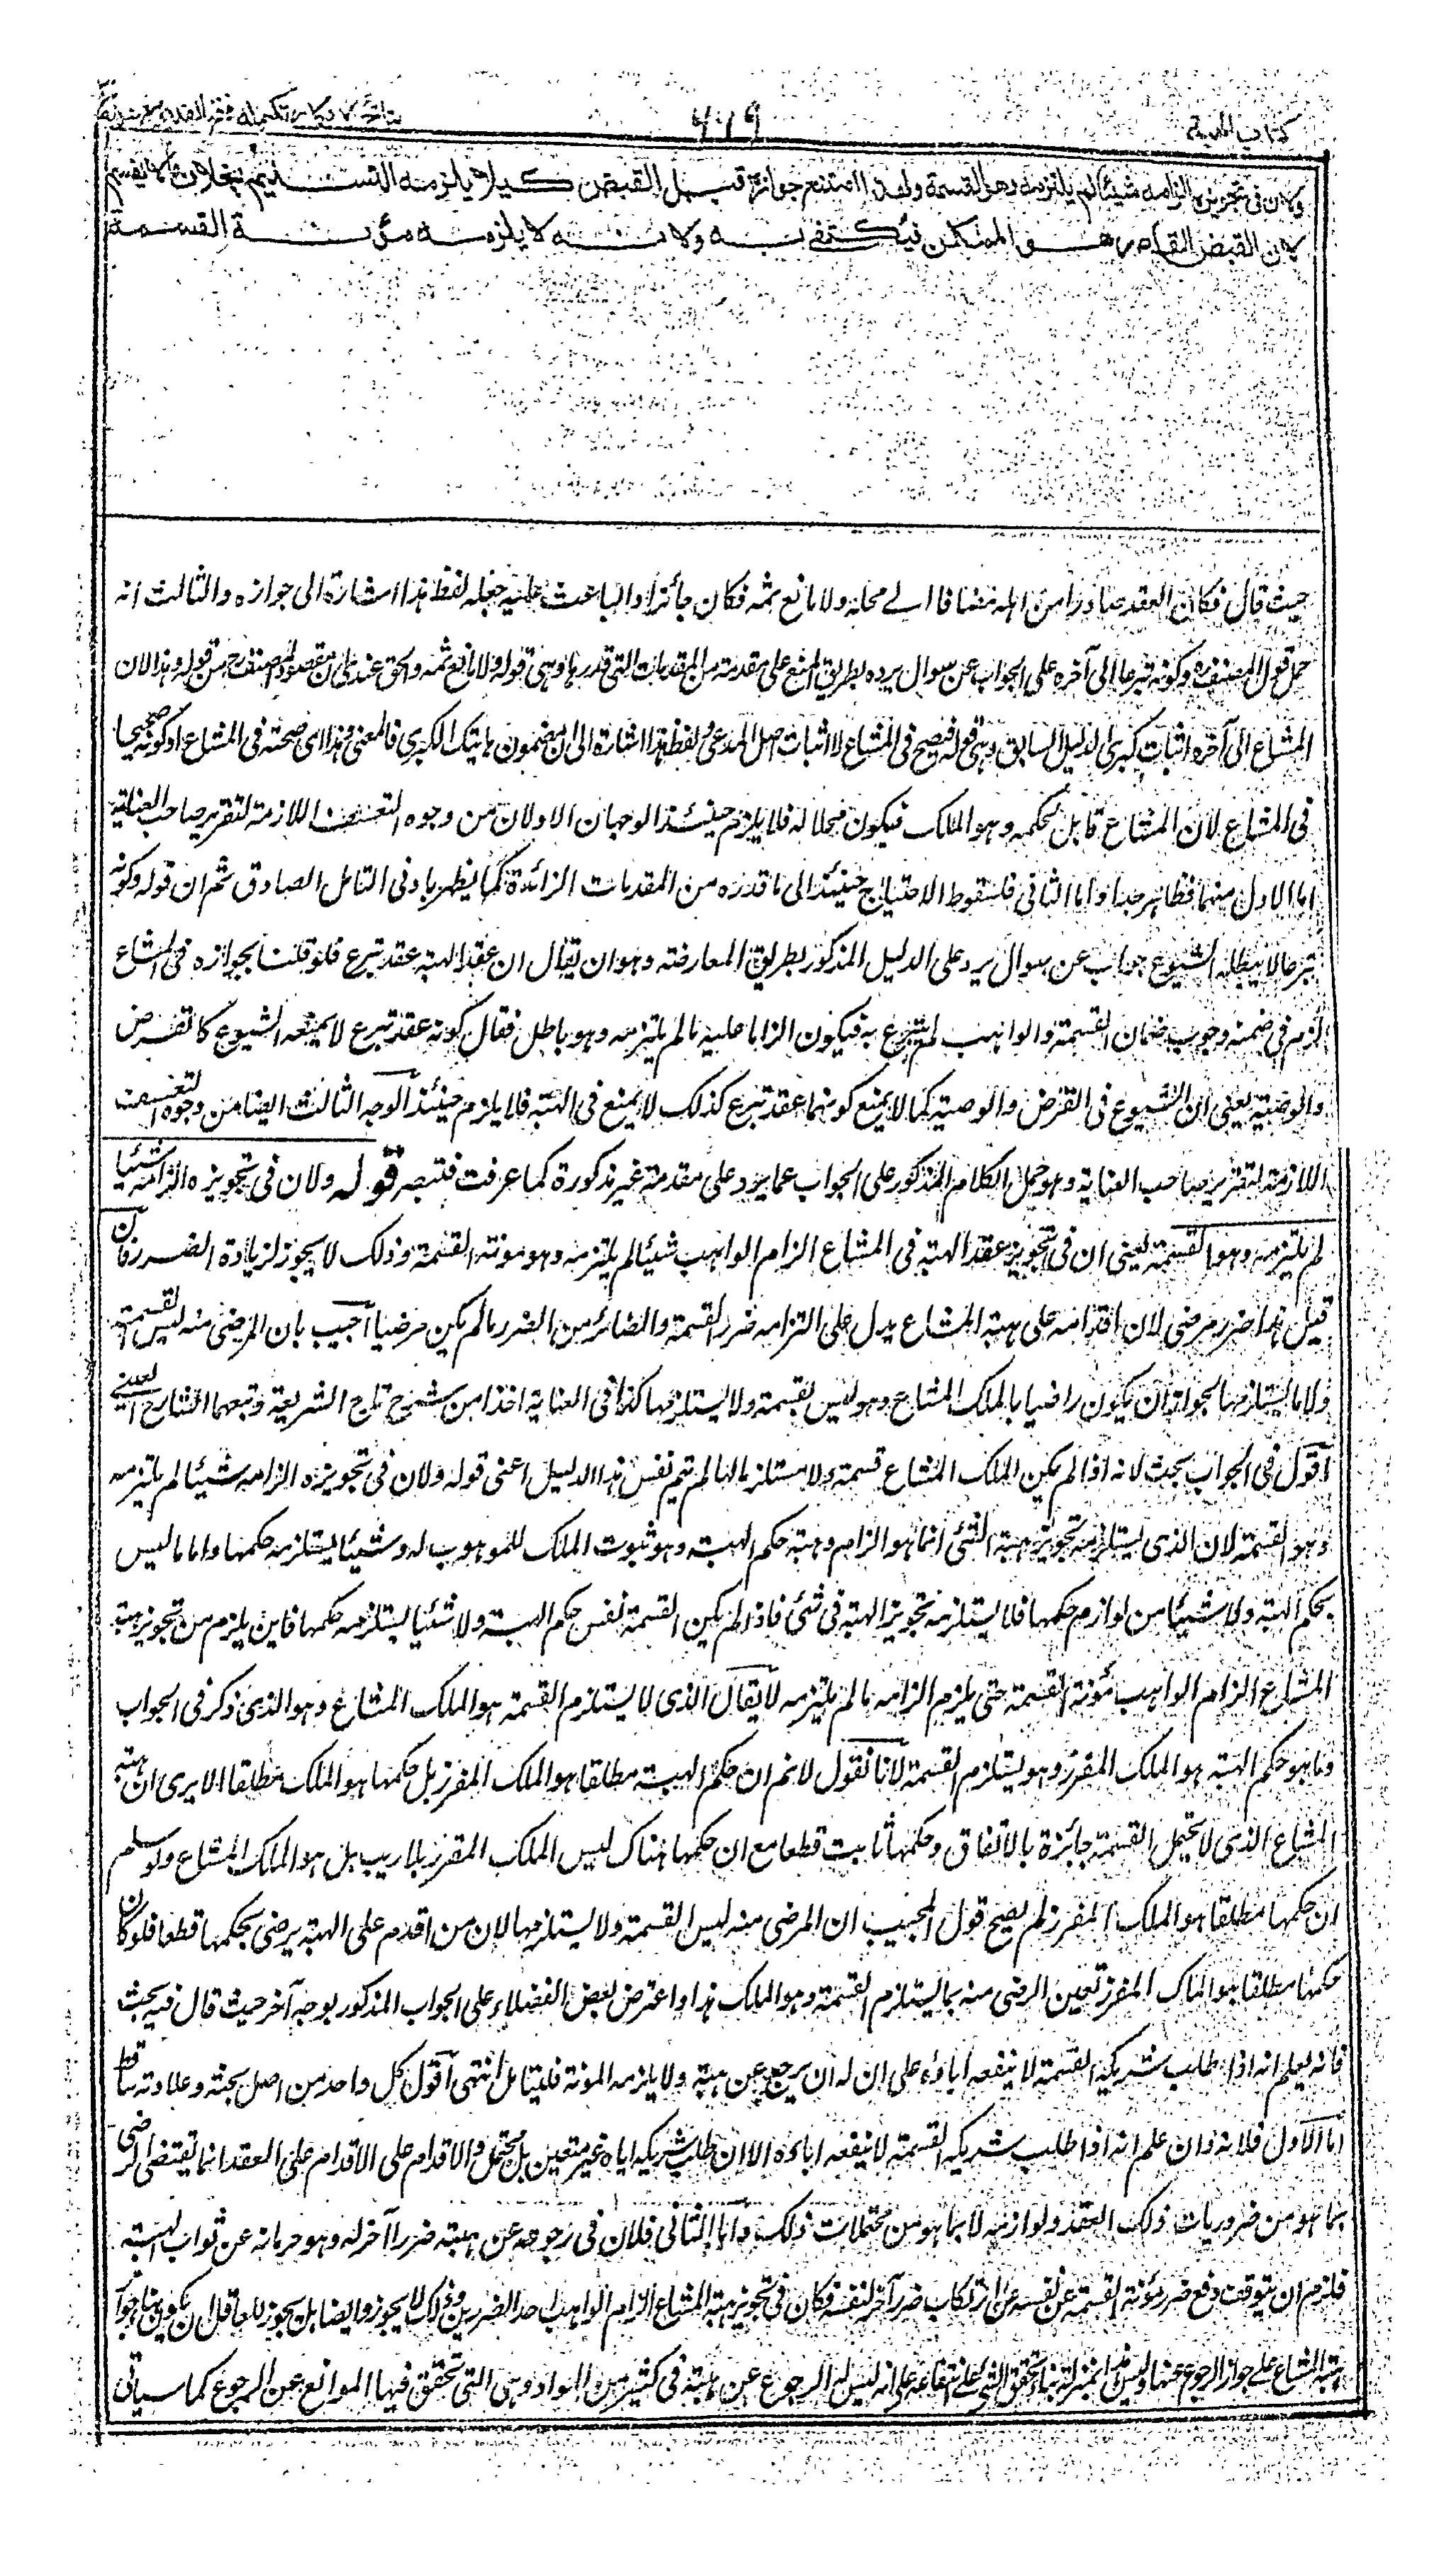 كتاب الهبة
٤١٩
نتائج الافكار تكمله فتح القدير
ولان فى تجويزه الزامه شيئا لم يلتزمه وهو القسمة ولهذا امتنع جوازه قبل القبض كيلا يلزمه التسليم بخلاف ما لا يقسم
لان القبض القاصر هو الممكن فيكتفى به ولانه لا يلزمه مؤنة القسمة
حيث قال فكان العقد صادرا من اهله مضافا الى محله ولا مانع ثمه فكان جائزا والباعث عليه جعله لفظ هذا اشارة الى جوازه والثالث انه
حمل قول المصنف وكونه تبرعا الى آخره على الجواب عن سوال يرده بطريق المنع على مقدمة من المقدمات التى قدرها وهى قوله ولا مانع ثمه والحق عندى ان مقصود المصنف من قوله وهذا لان
المشاع الى آخره اثبات كبرى الدليل السابق وهى قوله فيصح فى المشاع لا اثبات اصل المدعى ولفظ هذا اشارة الى ان مضمون هاتيك الكبرى فالمعنى وهذا اى صحته فى المشاع او كونه صحيحا
فى المشاع لان المشاع قابل لحكمه وهو الملك فيكون محلا له فلا يلزم حينئذ الوجهان الاولان من وجوه التعسف اللازمة لتقرير صاحب العناية
اما الاول منهما فظاهر جدا واما الثانى فلسقوط الاحتياج حينئذ الى ما قدره من المقدمات الزائدة كما يظهر بادنى التامل الصادق ثم ان قوله وكونه
تبرعا لا يبطله الشيوع جواب عن سوال يرد على الدليل المذكور بطريق المعارضة وهو ان يقال ان عقد الهبة عقد تبرع فلو قلنا بجوازه فى المشاع
لزم فى ضمنه وجوب ضمان القسمة والواهب لم يتبرع به فيكون الزاما عليه ما لم يلتزمه وهو باطل فقال كونه عقد تبرع لا يمنعه الشيوع كالقرض
والوصية يعنى ان الشيوع فى القرض والوصية كما لا يمنع كونهما عقد تبرع كذلك لا يمنع فى الهبة فلا يلزم حينئذ الوجه الثالث ايضا من وجوه التعسف
اللازمة لتقرير صاحب العناية وهو حمل الكلام المذكور على الجواب عما يرد على مقدمة غير مذكورة كما عرفت فتبصر قوله ولان فى تجويزه الزامه شيئا
لم يلتزمه وهو القسمة يعنى ان فى تجويز عقد الهبة فى المشاع الزام الواهب شيئا لم يلتزمه وهو مونة القسمة وذلك لا يجوز لزيادة الضرر فان
قيل هذا ضرر مرضى لان اقدامه على هبة المشاع يدل على التزامه ضرر القسمة والضائر من الضرر ما لم يكن مرضيا اجيب بان المرضى منه ليس القسمة
ولا ما يستلزمها لجواز ان يكون راضيا بالملك المشاع وهو ليس بقسمة ولا يستلزمها كذا فى العناية اخذا من شروح تاج الشريعة وتبعهما الشارح العينى
اقول فى الجواب بحث لانه اذا لم يكن الملك المشاع قسمة ولا مستلزما لها لم يتم نفس هذا الدليل اعنى قوله ولان فى تجويزه الزامه شيئا لم يلتزمه
وهو القسمة لان الذى يستلزمه تجويز هبة الشئ انما هو الزام وهبه حكم الهبة وهو ثبوت الملك للموهوب له وشيئا يستلزمه حكمها واما ما ليس
بحكم الهبة ولا شيئا من لوازم حكمها فلا يستلزمه تجويز الهبة فى شئ فاذا لم يكن القسمة نفس حكم الهبة ولا شيئا يستلزمه حكمها فاين يلزم من تجويز هبة
المشاع الزام الواهب مؤنة القسمة حتى يلزم الزامه ما لم يلتزمه لا يقال الذى لا يستلزم القسمة هو الملك المشاع وهو الذى ذكر فى الجواب
وما هو حكم الهبة هو الملك المفرز وهو يستلزم القسمة لانا نقول لا نم ان حكم الهبة مطلقا هو الملك المفرز بل حكمها هو الملك مطلقا الا يرى ان هبة
المشاع الذى لا تحتمل القسمة جائزة بالاتفاق وحكمها ثابت قطعا مع ان حكمها هناك ليس الملك المفرز بلا ريب بل هو الملك المشاع ولو سلم
ان حكمها مطلقا هو الملك المفرز لم يصح قول المجيب ان المرضى منه ليس القسمة ولا يستلزمها لان من اقدم على الهبة يرضى بحكمها قطعا فلو كان
حكمها مطلقا هو الملك المفرز تعين الرضى منه بما يستلزم القسمة وهو الملك هذا واعترض بعض الفضلاء على الجواب المذكور بوجه آخر حيث قال فيه بحث
فانه يعلم انه اذا طلب شريكه القسمة لا ينفعه اباؤه على ان له ان يرجع عن هبته ولا يلزمه المونة فليتامل انتهى اقول كل واحد من اصل بحثه وعلاوته ساقط
اما الاول فلانه وان علم انه اذا طلب شريكه القسمة لا ينفعه اباءه الا ان طلب شريكه اياه غير متعين بل محتمل والاقدام على الاقدام على العقد انما يقتضى الرضى
بما هو من ضروريات ذلك العقد ولوازمه لا بما هو من محتملات ذلك واما الثانى فلان فى رجوعه عن هبته ضررا آخر له وهو حرمانه عن ثواب الهبة
فلزم ان يتوقف دفع ضرر مؤنة القسمة عن نفسه على ارتكاب ضرر آخر لنفسه فكان فى تجويز هبة المشاع الزام الواهب احد الضررين وذلك لا يجوز وايضا بل يجوز للعاقل ان يكون بناء جواز
هبة المشاع على جواز الرجوع عنها وليس هذا بمنزلة بناء تحقق الشئ على انتفائه على انه ليس له الرجوع عن هبته فى كثير من المواد وهى التى تحقق فيها الموانع عن الرجوع كما سياتى